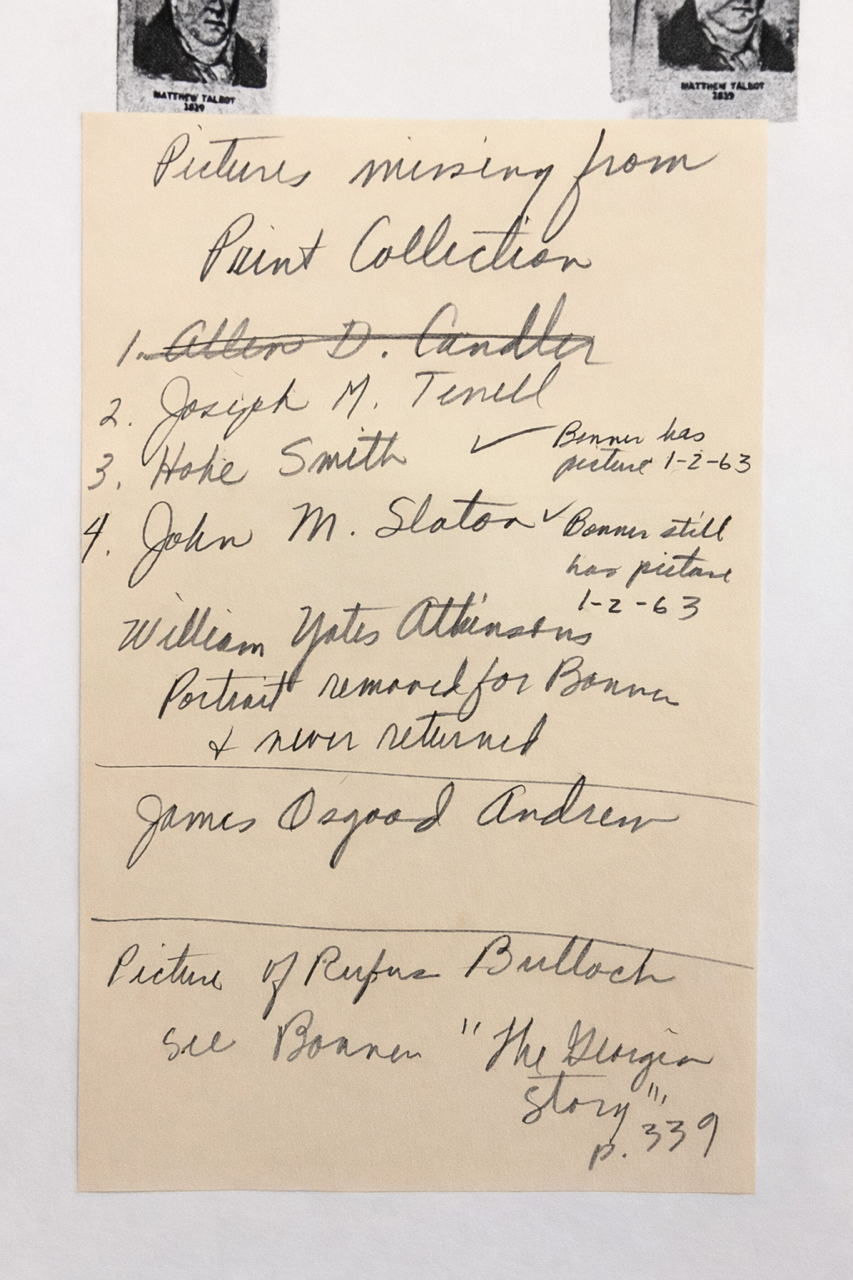 MATTHEW TALBOT
1819
MATTHEW TALBOT
1819
Pictures missing from
Print Collection
1. Allen D. Candler
2. Joseph M. Terrell
3. Hoke Smith ✓ Bonner has
picture 1-2-63
4. John M. Slaton ✓ Bonner still
has picture
1-2-63
William Yates Atkinsons
Portrait removed for Bonner
& never returned
James Osgood Andrew
Picture of Rufus Bullock
see Bonner "The Georgia
Story",
p. 339